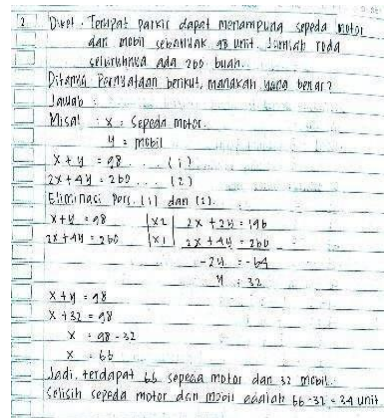 2 Diket. Tempat parkir dapat menampung sepeda motor
dan mobil sebanyak 98 unit. Jumlah roda
seluruhnya ada 260 buah.
Ditanya Pernyataan berikut, manakah yang benar?
Jawab :
Misal : x = Sepeda motor.
y = mobil
x + y = 98 ... (1)
2x + 4y = 260 ... (2)
Eliminasi Pers. (1) dan (2).
x + y = 98 |x2| 2x + 2y = 196
2x + 4y = 260 |x1| 2x + 4y = 260 -
-2y = -64
y = 32
x + y = 98
x + 32 = 98
x = 98 - 32
x = 66
Jadi, terdapat 66 sepeda motor dan 32 mobil.
Selisih sepeda motor dan mobil adalah 66 - 32 = 34 unit